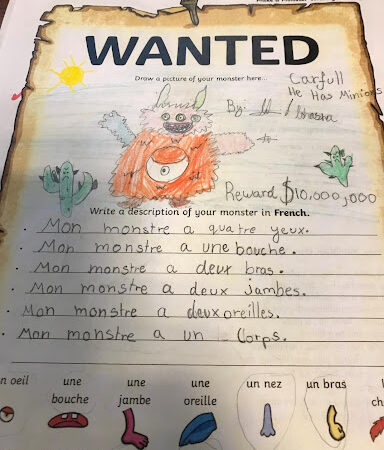 WANTED
Draw a picture of your monster here...
Carfull
He Has Minions
By:
Reward $10,000,000
Write a description of your monster in French.
Mon monstre a quatre yeux.
Mon monstre a une bouche.
Mon monstre a deux bras.
Mon monstre a deux jambes.
Mon monstre a deux oreilles.
Mon monstre a un Corps.
n oeil une une une un nez un bras
bouche jambe oreille ch